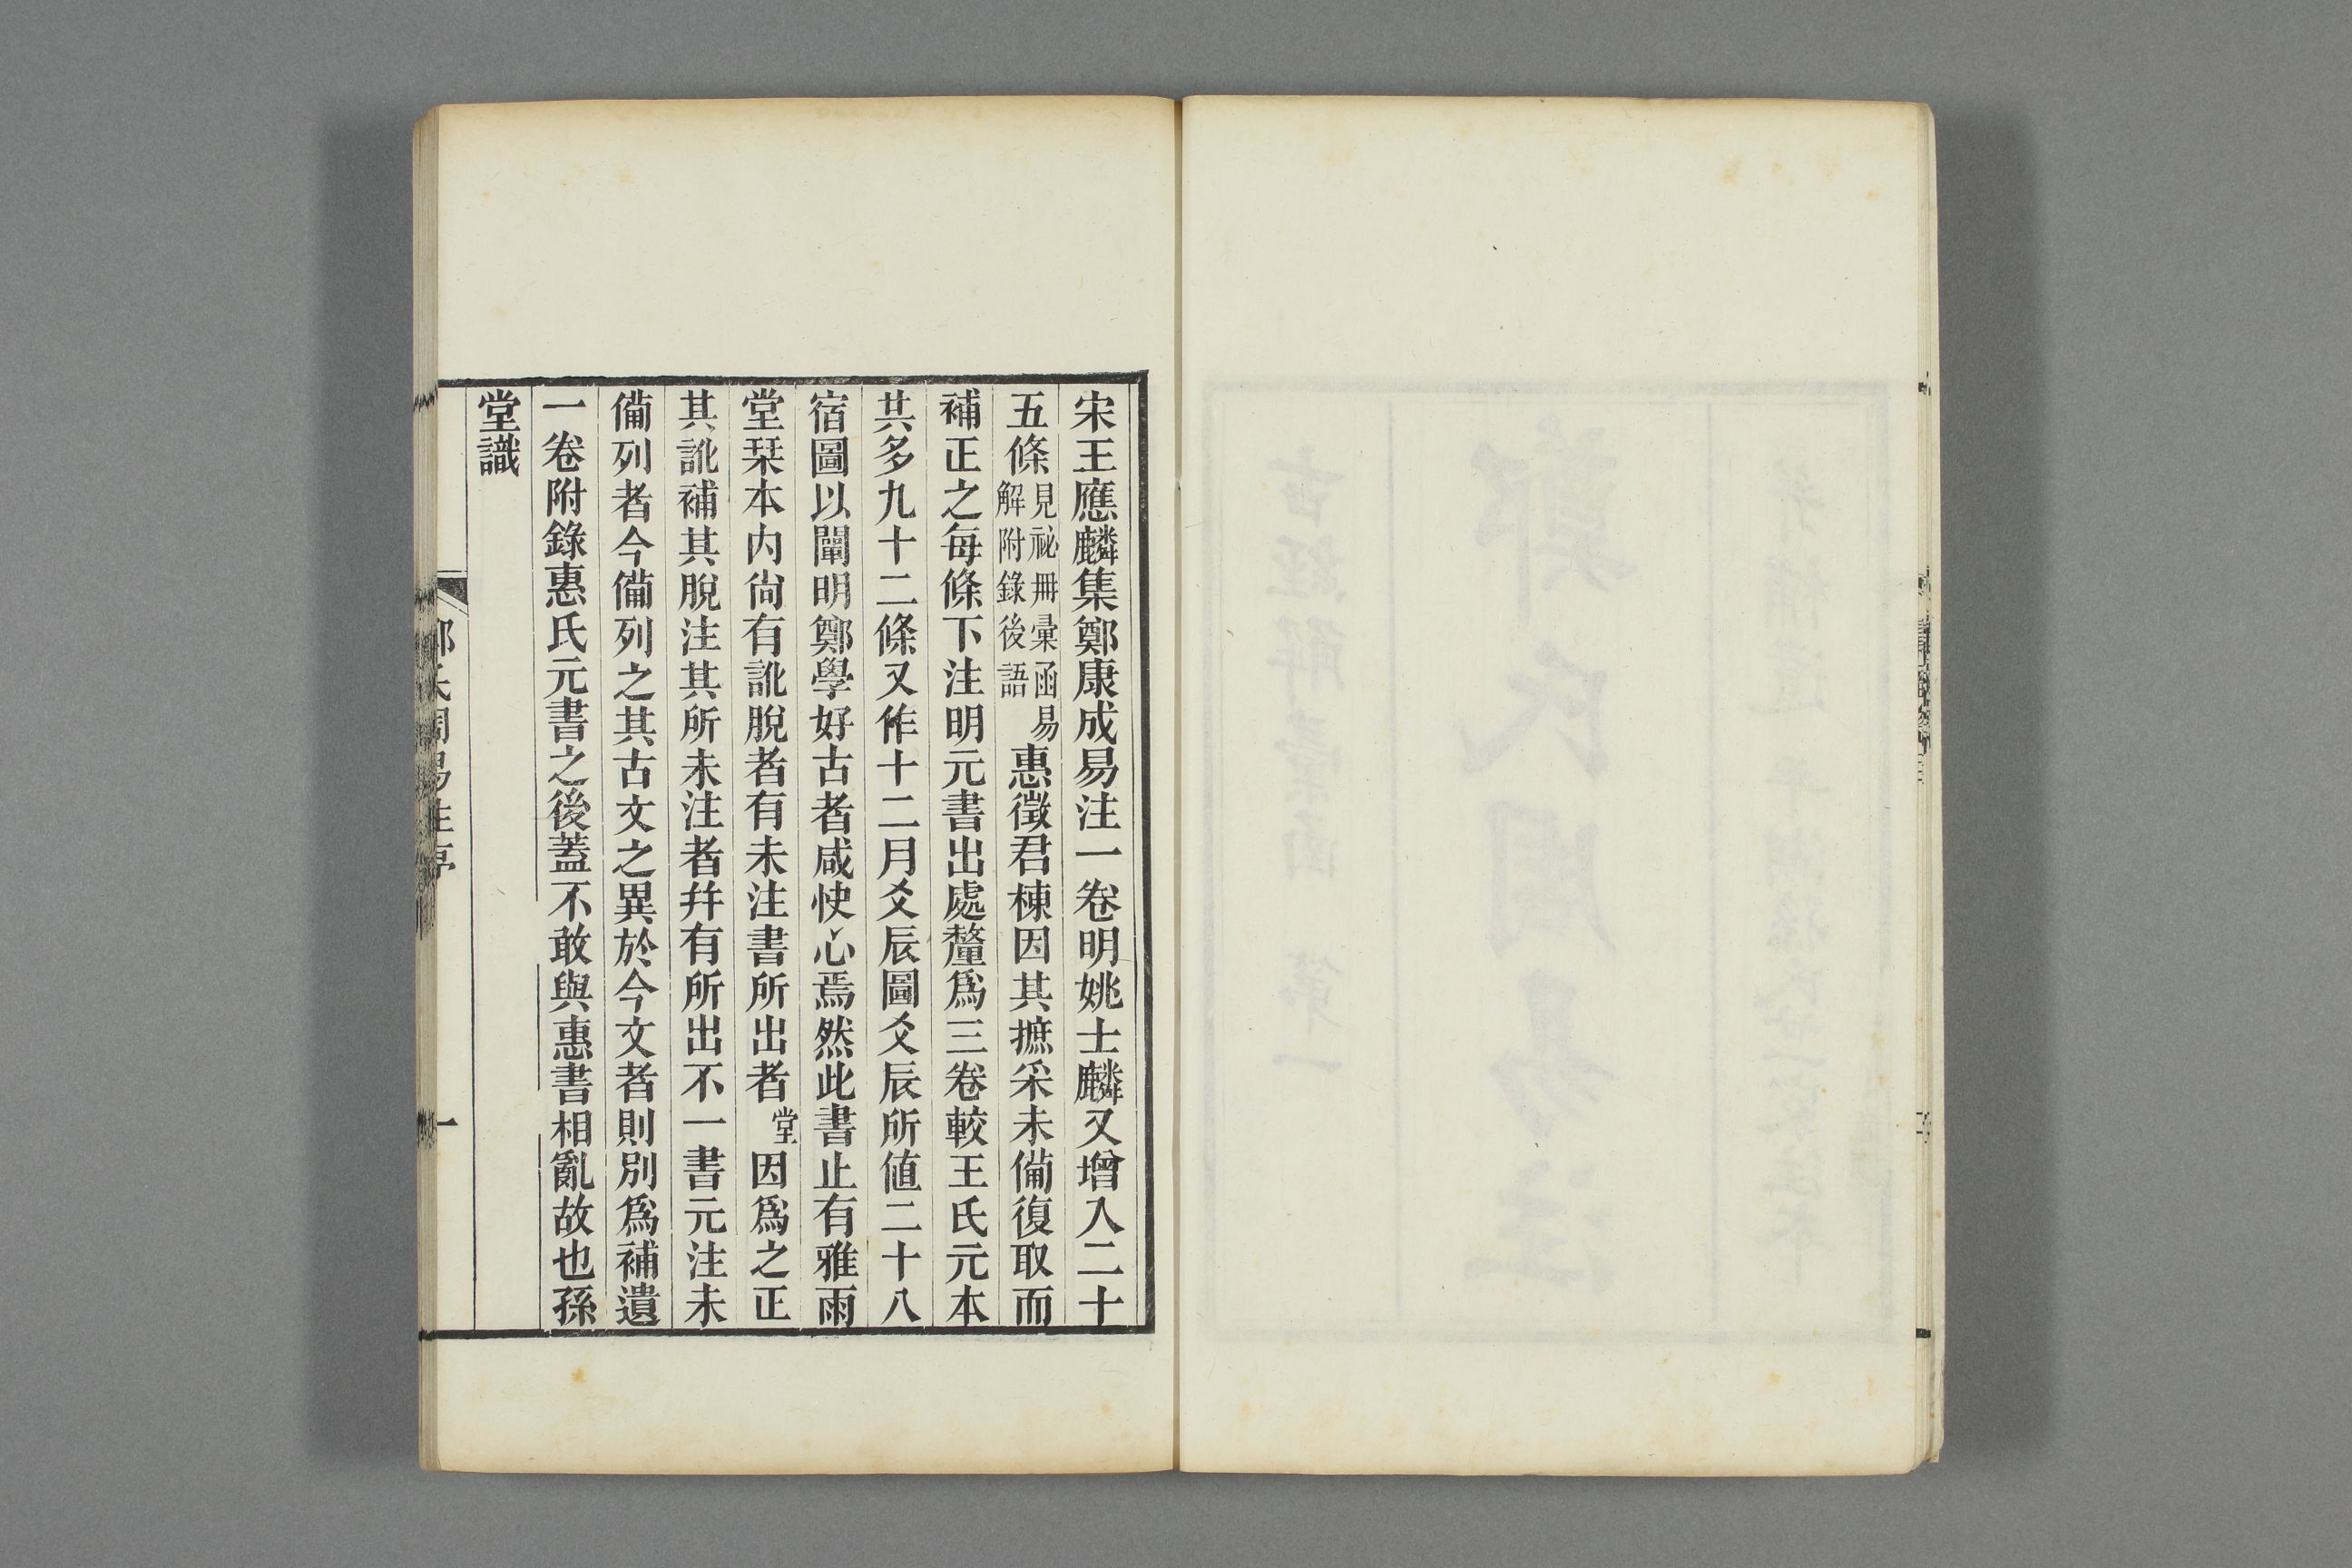 宋王應麟集鄭康成易注一卷明姚士麟又增入二十
五條見祕冊彙函易解附錄後語惠徵君棟因其摭采未僃復取而
補正之每條下注明元書出處釐爲三卷較王氏元本
共多九十二條又作十二月爻辰圖爻辰所値二十八
宿圖以闡明鄭學好古者咸快心焉然此書止有雅雨
堂栞本内尙有訛脫者有未注書所出者堂因爲之正
其訛補其脫注其所未注者幷有所出不一書元注未
僃列者今僃列之其古文之異於今文者則別爲補遺
一卷附錄惠氏元書之後蓋不敢與惠書相亂故也孫
堂識
鄭氏周易注序
一